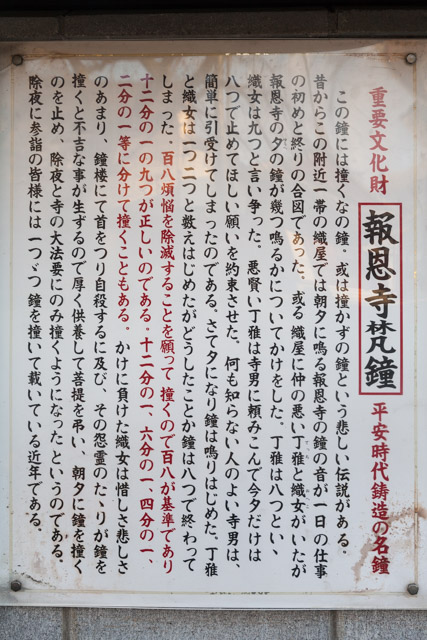 重要文化財 報恩寺梵鐘 平安時代鋳造の名鐘
この鐘には撞くなの鐘。或は撞かずの鐘という悲しい伝説がある。
昔からこの附近一帯の織屋では朝夕に鳴る報恩寺の鐘の音が一日の仕事
の初めと終りの合図であった。或る織屋に仲の悪い丁雅と織女がいたが
報恩寺の夕の鐘が幾つ鳴るかについてかけをした。丁雅は八つといい、
織女は九つと言い争った。悪賢い丁雅は寺男に頼みこんで今夕だけは
八つで止めてほしい願いを約束させた。何も知らない人のよい寺男は、
簡単に引受けてしまったのである。さて夕になり鐘は鳴りはじめた。丁雅
と織女は一つ二つと数えはじめたがどうしたことか鐘は八つで終わって
しまった。百八煩悩を除滅することを願って撞くので百八が基準であり
十二分の一の九つが正しいのである。十二分の一、六分の一、四分の一、
二分の一等に分けて撞くこともある。かけに負けた織女は惜しさ悲しさ
のあまり、鐘楼にて首をつり自殺するに及び、その怨霊のたゝりが鐘を
撞くと不吉な事が生ずるので厚く供養して菩提を弔い、朝夕に鐘を撞く
のを止め、除夜と寺の大法要にのみ撞くようになったというのである。
除夜に参詣の皆様には一つゞつ鐘を撞いて戴いている近年である。